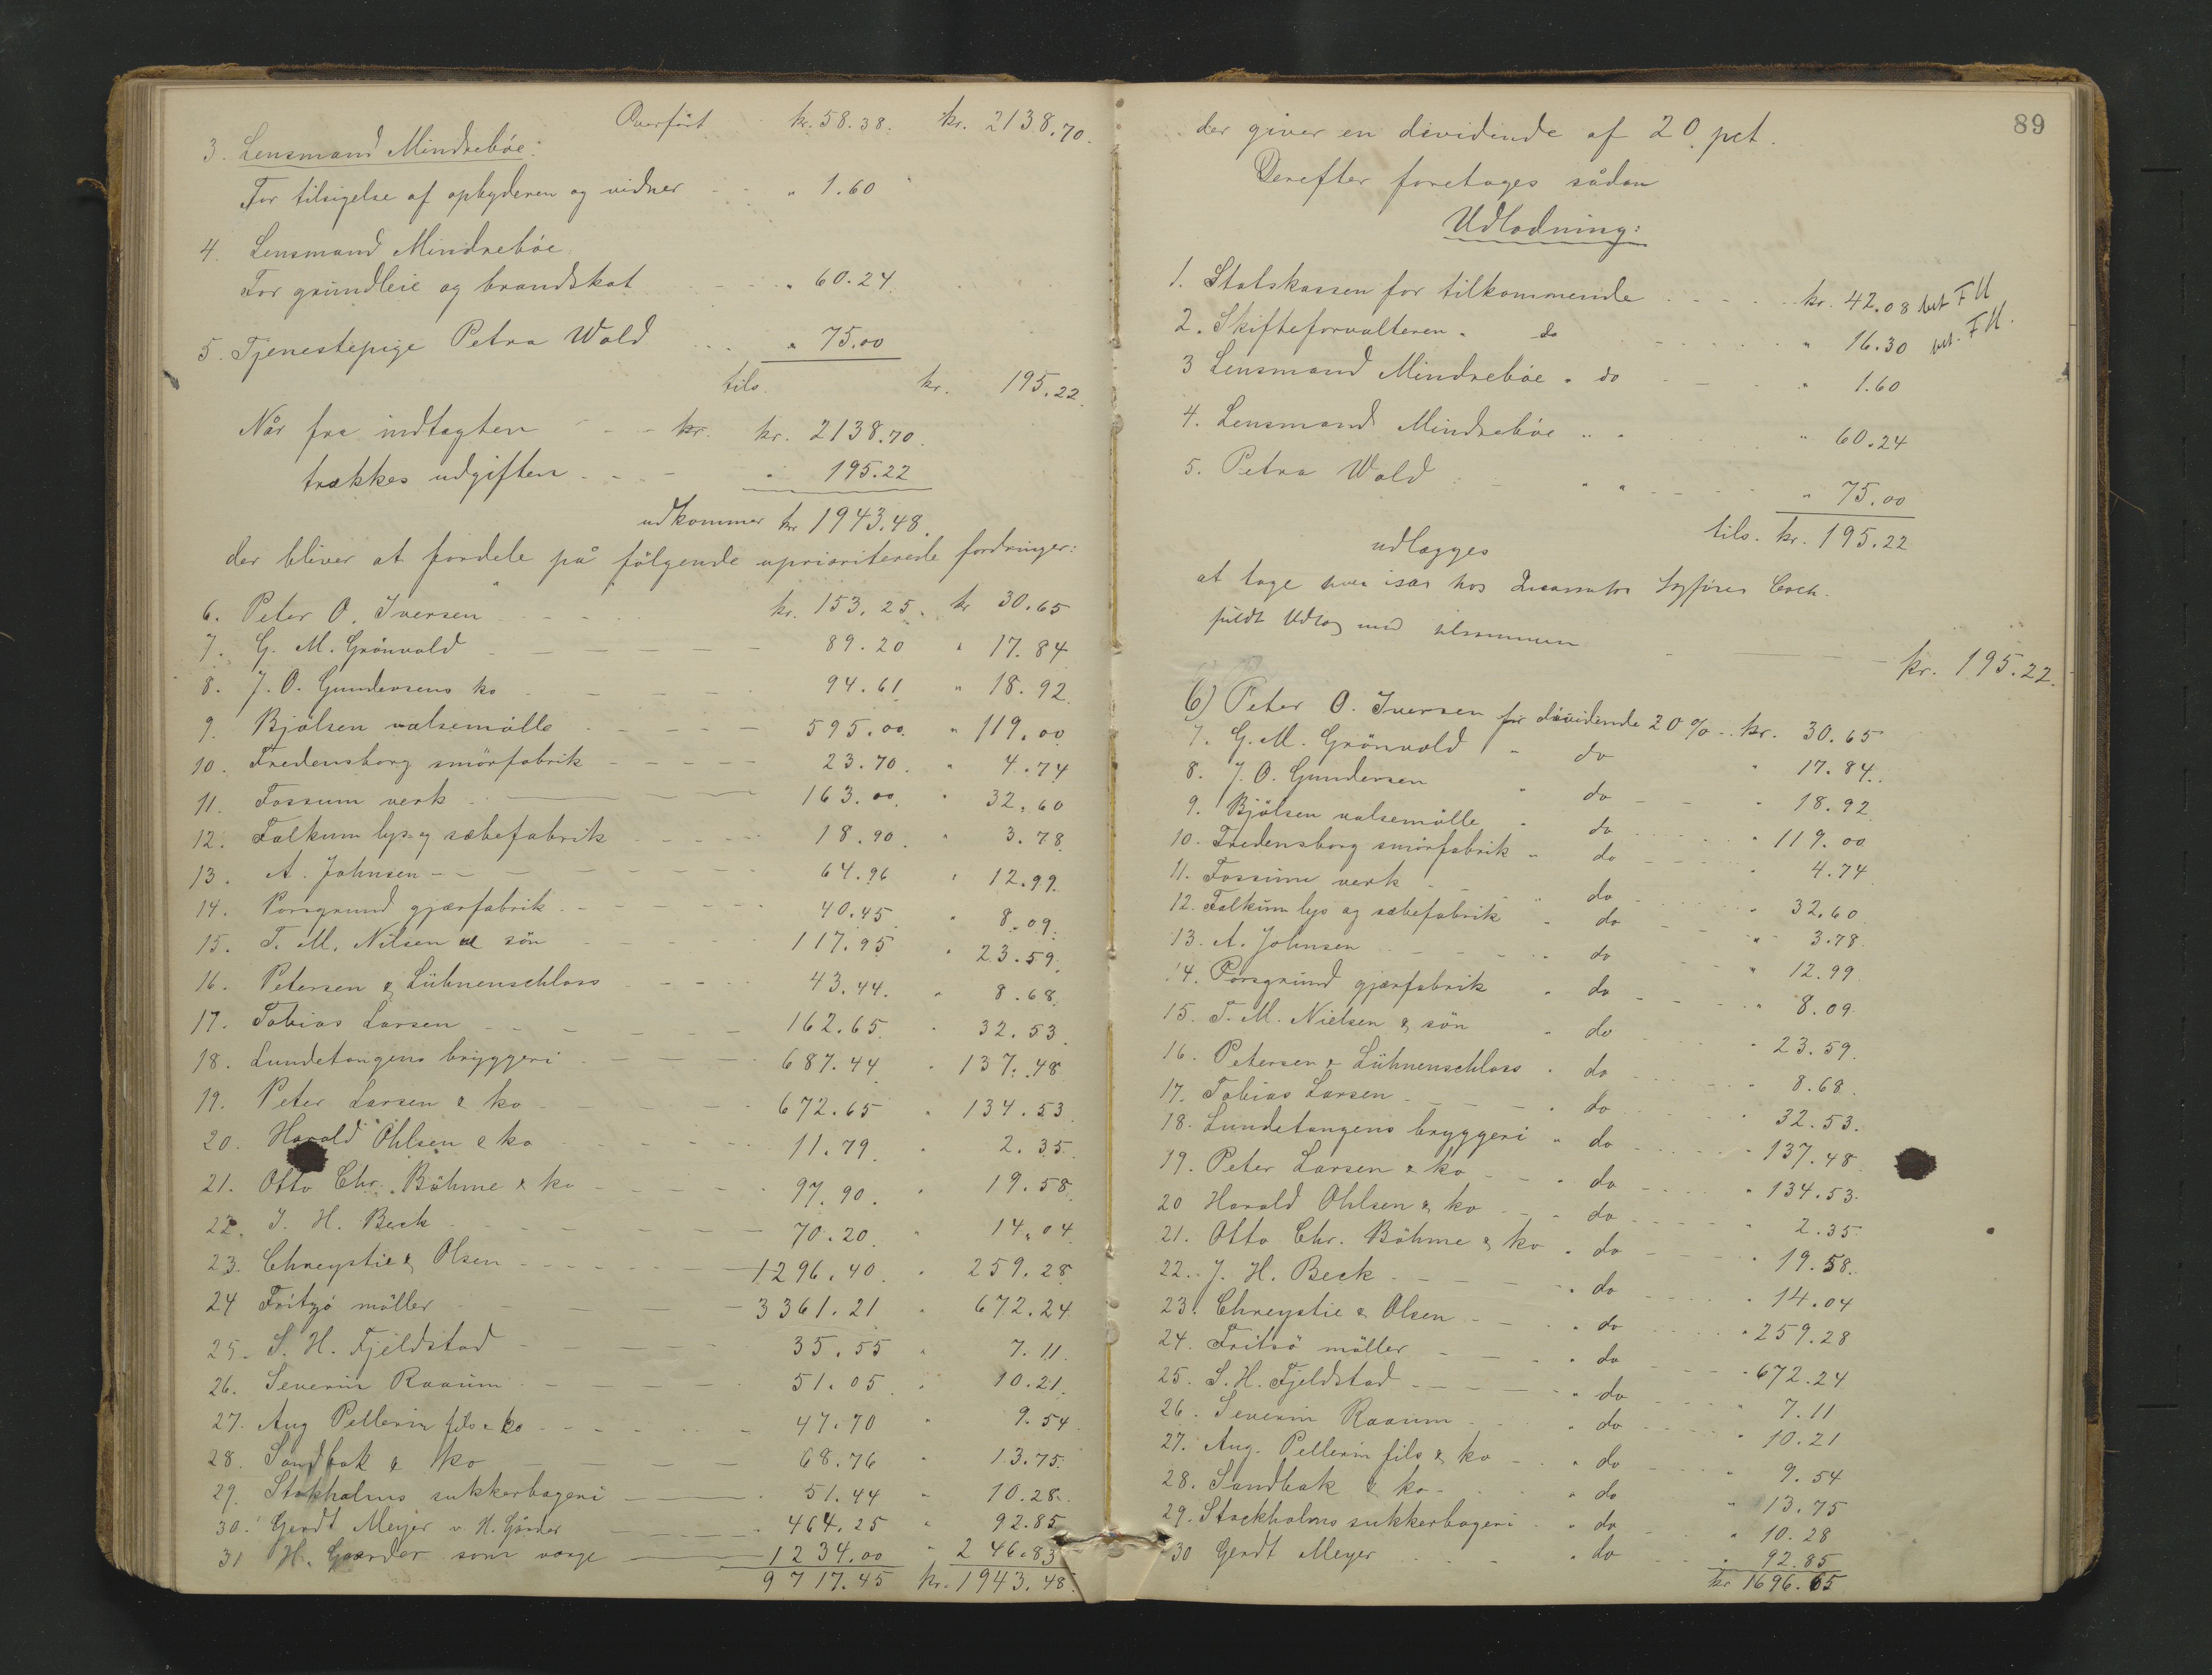 Overført kr. 58.38. kr. 2138.70.
3. Lensmand Mindrebøe:
For tilsigelse af opbyderen og vidner - - " 1.60
4. Lensmand Mindrebøe
For grundleie og brandskat - - - " 60.24
5. Tjenestepige Petra Wold ... " 75.00
tils. kr. 195.22.
Når fra indtægten - - - kr. kr. 2138.70.
trækkes udgiften - - - " 195.22
udkommer kr 1943.48.
der bliver at fordele på følgende uprioriterede fordringer:
6. Peter O. Iversen - - - - kr. 153.25. kr 30.65
7. G. M. Grønvold - - - - 89.20 " 17.84
8. J. O. Gundersens ko - - - - 94.61 " 18.92
9. Bjølsen valsemølle - - - - 595.00. " 119.00
10. Fredensborg smørfabrik - - - - 23.70. " 4.74
11. Fossum verk - - - - 163.00. " 32.60
12. Falkum lys- og sæbefabrik - - - - 18.90. " 3.78
13. A. Johnsen - - - - 64.96 " 12.99.
14. Porsgrund gjærfabrik - - - - 40.45 " 8.09.
15. T. M. Nilsen & søn - - - - 117.95 " 23.59.
16. Petersen & Lühnenschloss - - - - 43.44. " 8.68.
17. Tobias Larsen - - - - 162.65. " 32.53.
18. Lundetangens bryggeri - - - - 687.44 " 137.48
19. Peter Larsen & ko - - - - 672.65 " 134.53
20. Harald Ohlsen & ko - - - - 11.79. " 2.35.
21. Otto Chr. Böhme & ko - - - - 97.90. " 19.58.
22. J. H. Beck - - - - 70.20. " 14.04
23. Chreystie & Olsen - - - - 1296.40. " 259.28
24 Fritzø møller - - - - 3361.21 " 672.24
25. S. H. Fjeldstad - - - - 35.55 " 7.11.
26. Severin Raaum - - - - 51.05. " 10.21.
27. Aug Pellerin fils & ko - - - - 47.70 " 9.54
28. Sandbak & ko - - - - 68.76 " 13.75.
29. Stokholms sukkerbageri - - - - 51.44 " 10.28.
30. Gerdt Meyer v. H. Gårder - - - - 464.25 " 92.85
31 H. Gaarder som værge - - - - 1234.00 " 246.83
9717.45 kr. 1943.48.
89
der giver en dividende af 20 pct.
Derefter foretages sådan
Udlodning:
1. Statskassen for tilkommende - - - - kr. 42.08 bet FH
2. Skifteforvalteren " do - - - - " 16.30 bet. FH.
3 Lensmand Mindrebøe " do - - - - " 1.60
4. Lensmand Mindrebøe " " " 60.24
5. Petra Wold - " " - - - " 75.00
tils. kr. 195.22
udlægges
at tage hver især hos
fuldt Udlæg med
kr. 195.22.
6) Peter O. Iversen for dividende 20 % - kr. 30.65
7. G. M. Grønvold " do " 17.84.
8. J. O. Gundersen " do - - " 18.92
9. Bjølsen valsemølle " do - - " 119.00
10. Fredensborg smørfabrik " do - - " 4.74
11. Fossum verk - - " do - - " 32.60
12. Falkum lys og sæbefabrik " do - - " 3.78.
13. A. Johnsen - - " do - - " 12.99
14. Porsgrund gjærfabrik " do - - " 8.09
15. T. M. Nielsen & søn " do - - " 23.59.
16. Petersen & Lühnenschloss " do - - " 8.68.
17. Tobias Larsen - - " do - - " 32.53.
18. Lundetangens bryggeri " do - - " 137.48
19. Peter Larsen & ko - - " do - - " 134.53.
20 Harald Ohlsen & ko - - " do - - " 2.35
21. Otto Chr. Böhme & ko " do - - " 19.58.
22. J. H. Beck - - " do - - " 14.04
23. Chreystie & Olsen - - " do - - " 259.28
24. Fritsø møller - - " do - - " 672.24
25. S. H. Fjeldstad - - " do - - " 7.11
26. Severin Raaum - - " do - - " 10.21
27. Aug. Pellerin fils & ko - " do - - " 9.54
28. Sandbak & ko - - " do - - " 13.75
29. Stockholms sukkerbageri " do - - " 10.28
30 Gerdt Meyer - - " do - - " 92.85
kr 1696.65